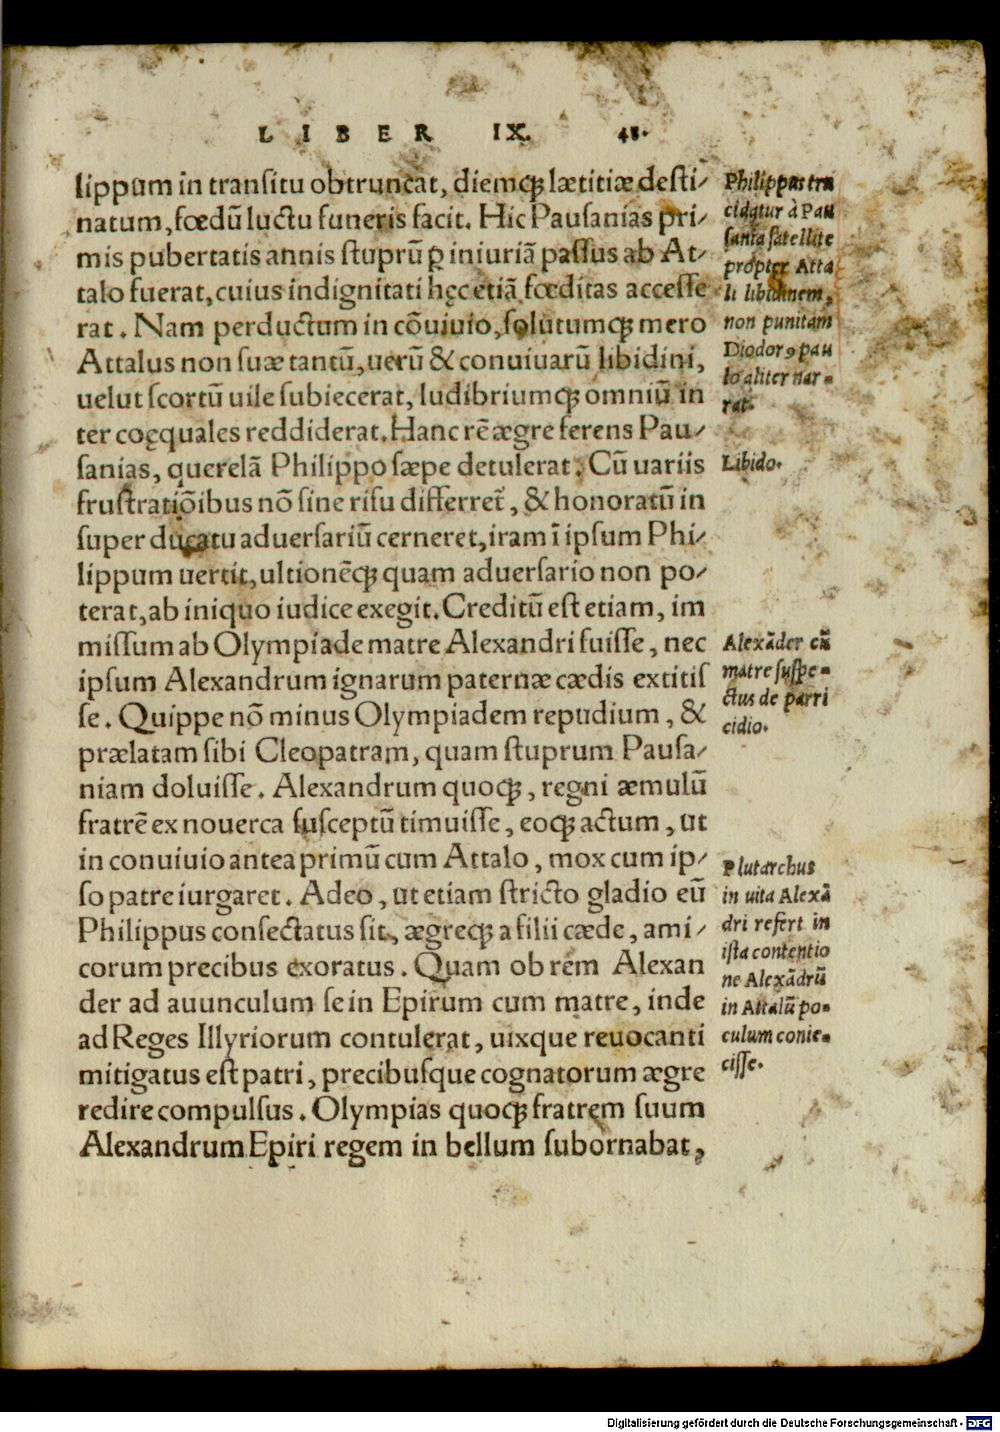 LIBER IX. 48.
lippum in transitu obtruncat, diemq́; lætitiæ desti/
natum, fœdũ luctu funeris facit. Hic Pausanias pri/
mis pubertatis annis stuprũ ꝑ iniuriã passus ab At/
talo fuerat, cuius indignitati hęc etiã fœditas accesse
rat. Nam perductum in cõuiuio, solutumq́; mero
Attalus non suæ tantũ, uerũ & conuiuarũ libidini,
uelut scortũ uile subiecerat, ludibriumq́; omniũ in
ter coęquales reddiderat. Hanc rẽ ægre ferens Pau/
sanias, querelã Philippo sæpe detulerat. Cũ uariis
frustratiõibus nõ sine risu differret, & honoratũ in
super ducatu aduersariũ cerneret, iram ĩ ipsum Phi/
lippum uertit, ultionẽq́; quam aduersario non po/
terat, ab iniquo iudice exegit. Creditũ est etiam, im
missum ab Olympiade matre Alexandri fuisse, nec
ipsum Alexandrum ignarum paternæ cædis extitis
se. Quippe nõ minus Olympiadem repudium, &
prælatam sibi Cleopatram, quam stuprum Pausa/
niam doluisse. Alexandrum quoq́;, regni æmulũ
fratrẽ ex nouerca susceptũ timuisse, eoq́; actum, ut
in conuiuio antea primũ cum Attalo, mox cum ip/
so patre iurgaret. Adeo, ut etiam stricto gladio eũ
Philippus consectatus sit, ægreq́; a filii cæde, ami/
corum precibus exoratus. Quam ob rem Alexan
der ad auunculum se in Epirum cum matre, inde
ad Reges Illyriorum contulerat, uixque reuocanti
mitigatus est patri, precibusque cognatorum ægre
redire compulsus. Olympias quoq́; fratrem suum
Alexandrum Epiri regem in bellum subornabat,
Philippus tru
cidatur à Pau
sania satellite
propter Atta
li libidinem,
non punitam
Diodorꝰ pau
lo aliter nar-
rat.
Libido.
Alexãder cũ
matre suspe-
ctus de parri
cidio.
Plutarchus
in uita Alexã
dri refert in
ista contentio
ne Alexãdrũ
in Attalũ po-
culum conie-
cisse.
Digitalisierung gefördert durch die Deutsche Forschungsgemeinschaft - DFG